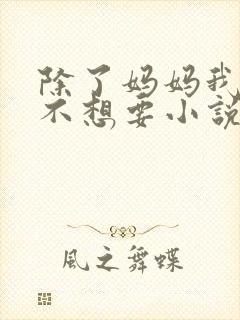 除了妈妈我
不想要小説
風之舞蝶